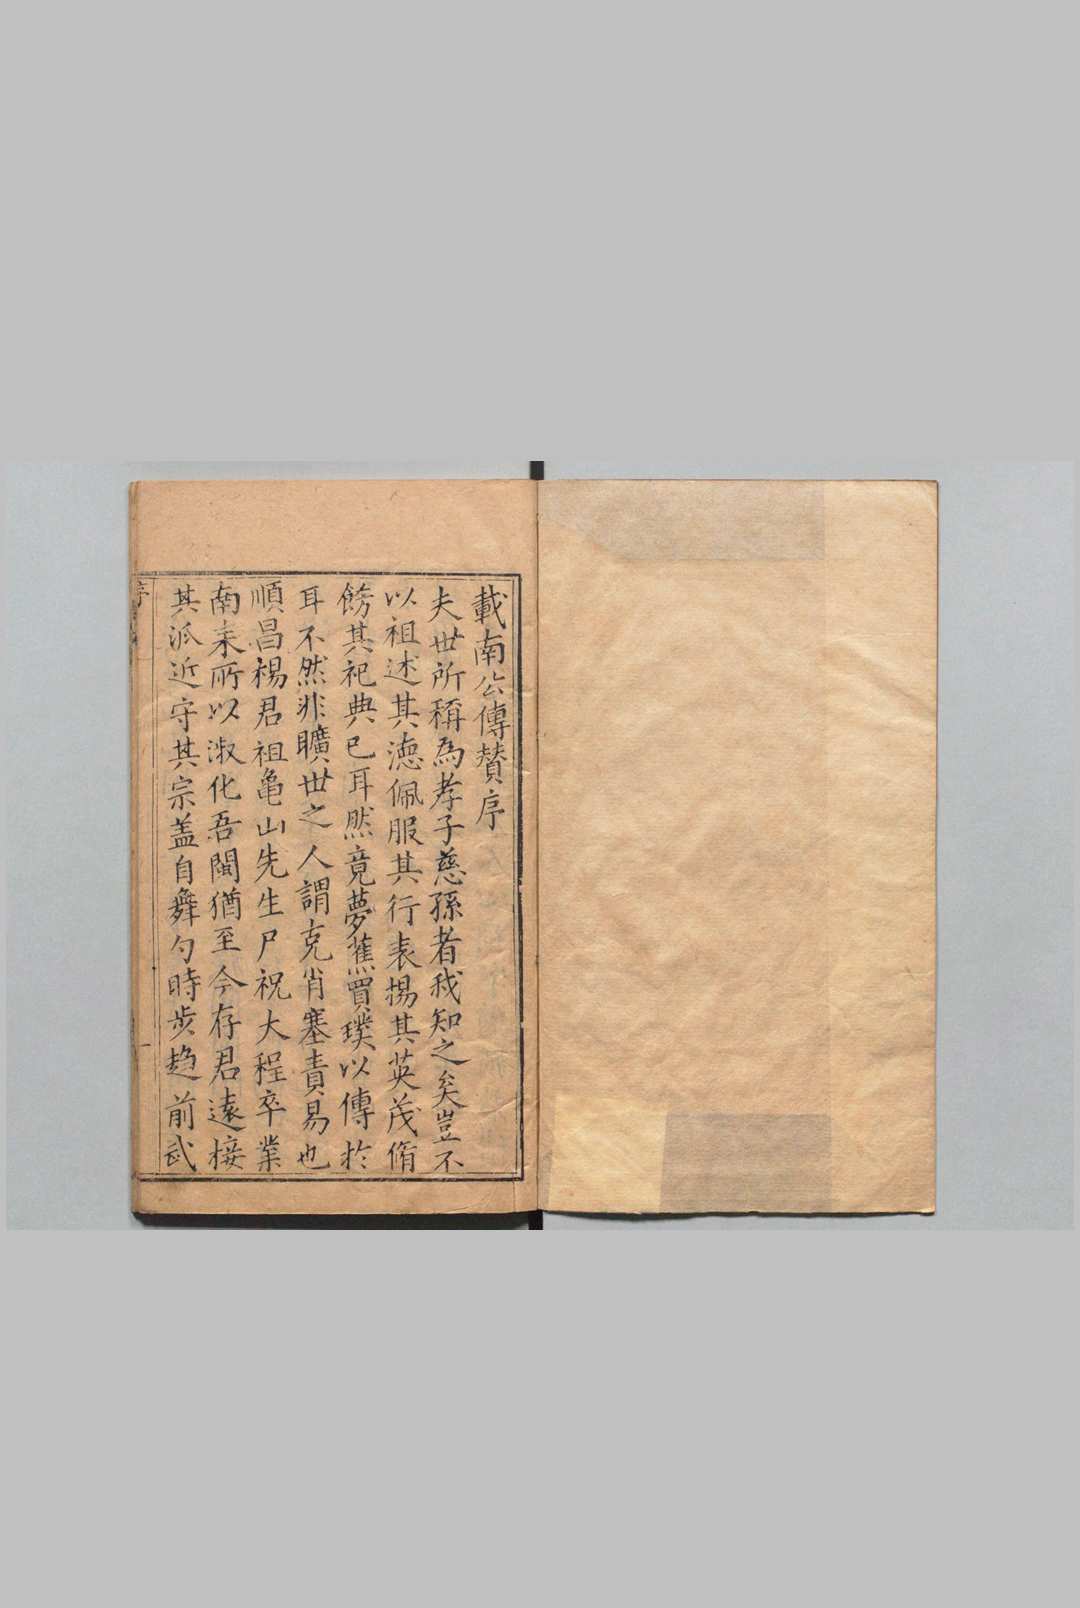 載南公傳贊序
夫世所稱為孝子慈孫者我知之矣豈不
以祖述其德佩服其行表揚其英茂脩
餝其祀典已耳然竟夢蕉買璞以傳於
耳不然非曠世之人謂克肖塞責易也
順昌楊君祖龜山先生尸祝大程卒業
南來所以淑化吾閩猶至今存君遠接
其派近守其宗盖自舞勺時步趋前武
序